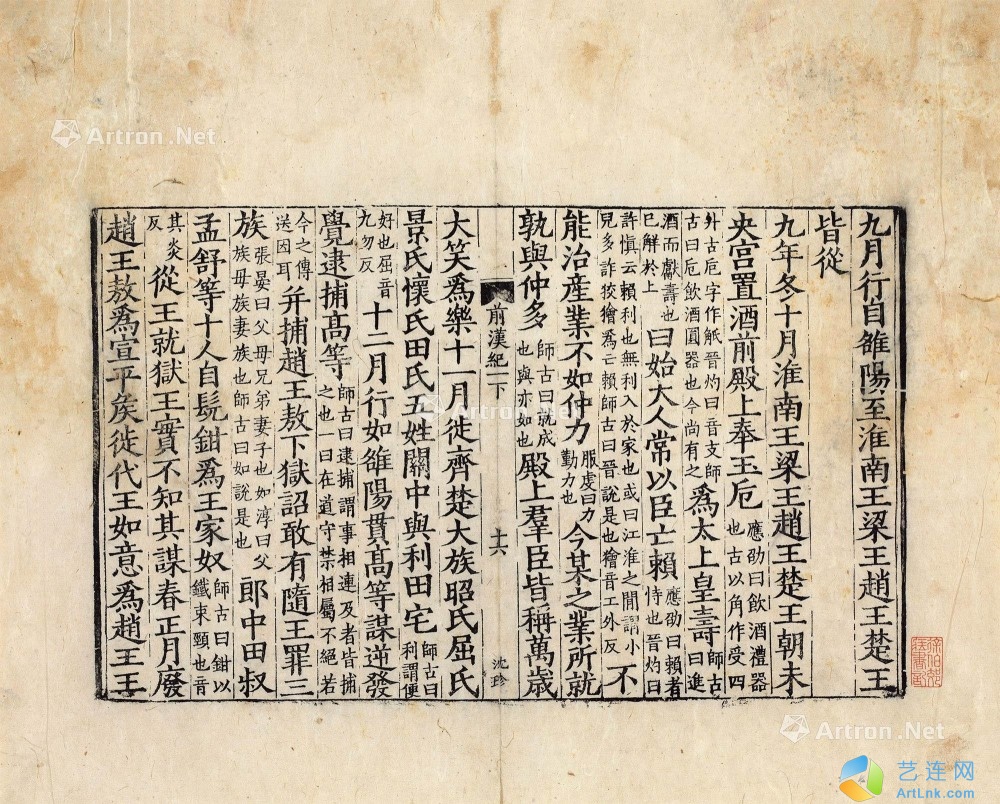 九月行自雒陽至淮南王梁王趙王楚王
皆從
九年冬十月淮南王梁王趙王楚王朝未
央宮置酒前殿上奉玉卮應劭曰飲酒禮器也古以角作受四
升古卮字作觝晉灼曰音支師古曰卮飲酒圓器也今尚有之為太上皇壽師古曰進
酒而獻壽也已解於上曰始大人常以臣亡賴應劭曰賴者恃也晉灼曰
許慎云賴利也無利入於家也或曰江淮之閒謂小兒多詐狡獪爲亡賴師古曰晉說是也獪音工外反不
能治產業不如仲力服虔曰力勤力也今某之業所就
孰與仲多師古曰就成也與亦如也殿上羣臣皆稱萬歲
前漢紀一下
十六
沈珍
大笑爲樂十一月徙齊楚大族昭氏屈氏
景氏懷氏田氏五姓關中與利田宅師古曰利謂便
好也屈音九勿反十二月行如雒陽貫高等謀逆發
覺逮捕高等師古曰逮捕謂事相連及者皆捕之也一曰在道守禁相屬不絕若
今之傳送囚耳并捕趙王敖下獄詔敢有隨王罪三
族張晏曰父母兄弟妻子也如淳曰父族母族妻族也師古曰如說是也郎中田叔
孟舒等十人自髡鉗爲王家奴師古曰鉗以鐵束頸也音
其炎反從王就獄王實不知其謀春正月廢
趙王敖爲宣平矦徙代王如意爲趙王王
Artron.Net
Artron.Net
Artron.Net
艺连网
ArtLnk.com